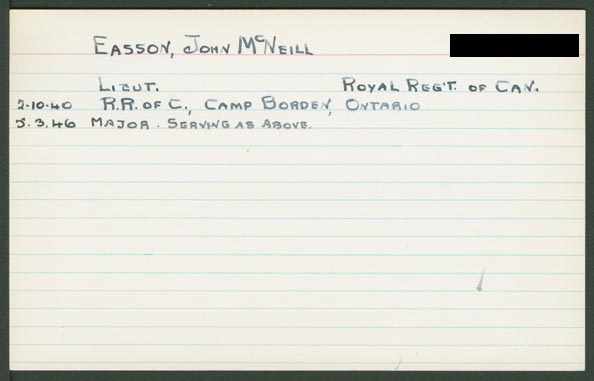 EASSON, JOHN McNEILL
LIEUT. ROYAL REG'T. OF CAN.
2.10.40 R.R. OF C., CAMP BORDEN, ONTARIO
5.3.46 MAJOR. SERVING AS ABOVE.